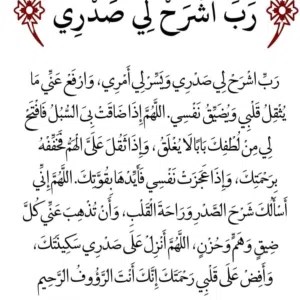 رَبِّ اشْرَحْ لِي صَدْرِي
رَبِّ اشْرَحْ لِي صَدْرِي وَيَسِّرْ لِي أَمْرِي، وَارْفَعْ عَنِّي مَا
يُثْقِلُ قَلْبِي وَيُضَيِّقُ نَفْسِي. اللَّهُمَّ إِذَا ضَاقَتْ بِيَ السُّبُلُ فَافْتَحْ
لِي مِنْ لُطْفِكَ بَابًا لَا يُغْلَقُ، وَإِذَا ثَقُلَ عَلَيَّ الْهَمُّ فَخَفِّفْهُ
بِرَحْمَتِكَ، وَإِذَا عَجَزَتْ نَفْسِي فَأَيِّدْهَا بِقُوَّتِكَ. اللَّهُمَّ إِنِّي
أَسْأَلُكَ شَرْحَ الصَّدْرِ وَرَاحَةَ الْقَلْبِ، وَأَنْ تُذْهِبَ عَنِّي كُلَّ
ضِيقٍ وَهَمٍّ وَحُزْنٍ، اللَّهُمَّ أَنْزِلْ عَلَى صَدْرِي سَكِينَتَكَ،
وَأَفِضْ عَلَى قَلْبِي رَحْمَتَكَ إِنَّكَ أَنْتَ الرَّؤُوفُ الرَّحِيمُ